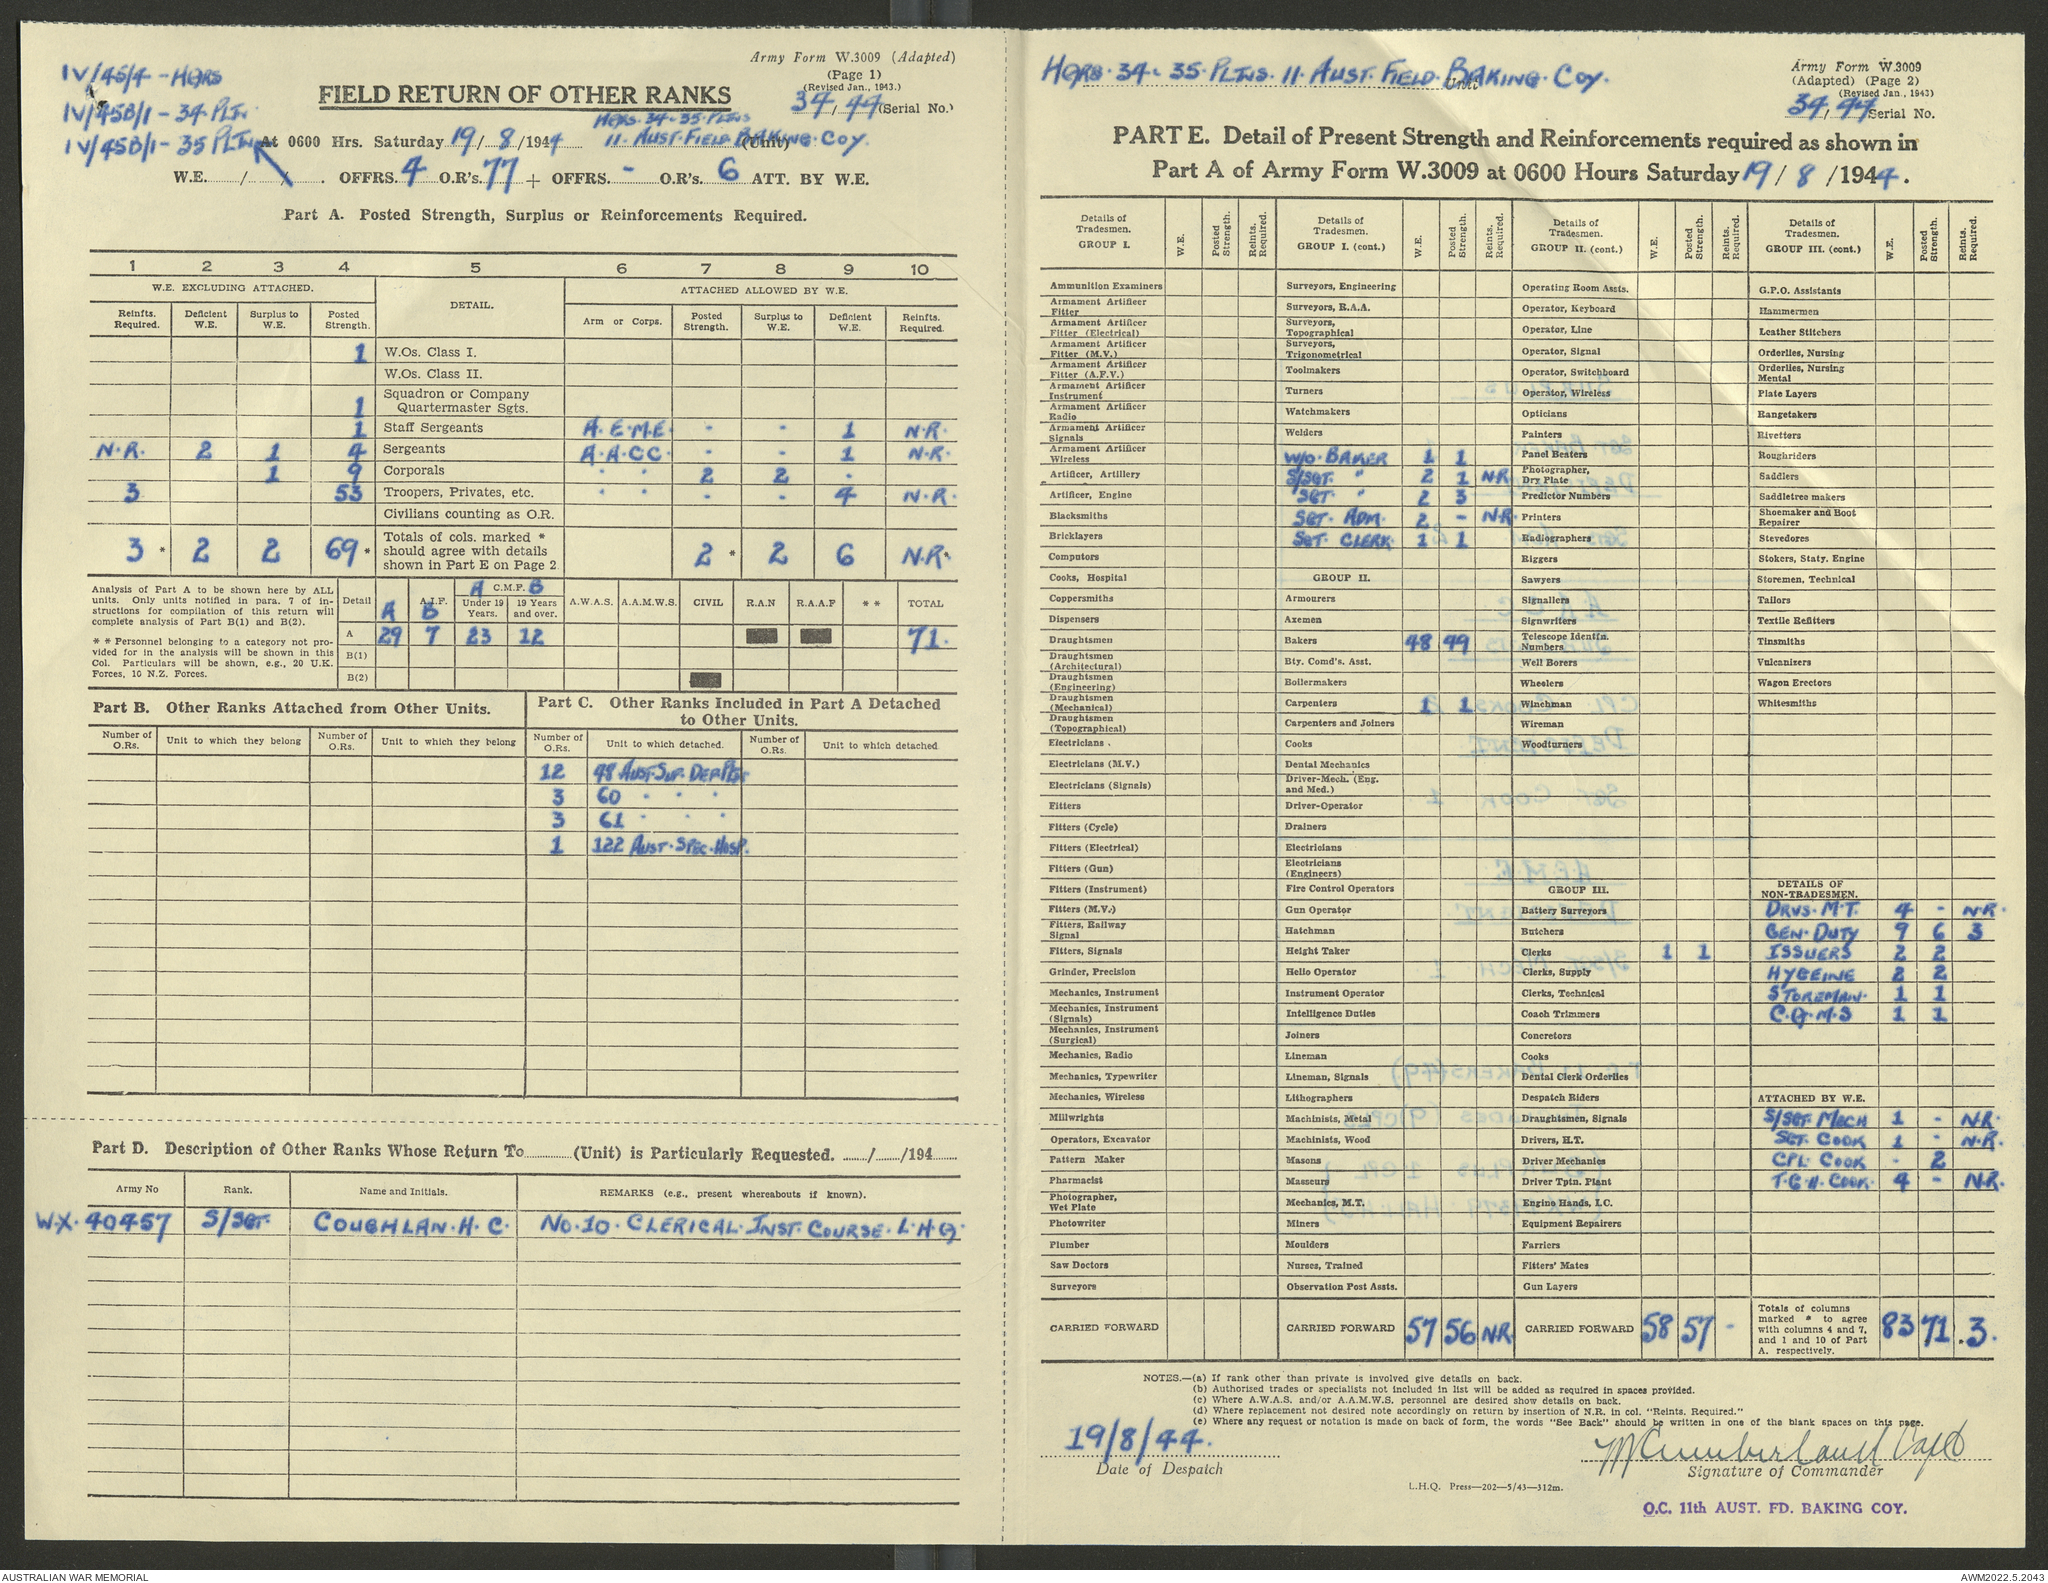 Army Form W.3009 (Adapted)
(Page 1)
(Revised Jan., 1943.)
IV/45/4 - HQRS
IV/45B/1 - 34 PLTN.
IV/45B/1 - 35 PLTN.
FIELD RETURN OF OTHER RANKS
34/44 (Serial No.)
HQRS. 34 - 35 PLTNS
At 0600 Hrs. Saturday 19/8/1944 11. AUST. FIELD BAKING. COY. (Unit)
W.E. / / . OFFRS. 4 O.R's. 77 + OFFRS. - O.R's. 6 ATT. BY W.E.
Part A. Posted Strength, Surplus or Reinforcements Required.
1 2 3 4 5 6 7 8 9 10
W.E. EXCLUDING ATTACHED. DETAIL. ATTACHED ALLOWED BY W.E.
Reinfts. Required. Deficient W.E. Surplus to W.E. Posted Strength. Arm or Corps. Posted Strength. Surplus to W.E. Deficient W.E. Reinfts. Required.
1 W.Os. Class I.
W.Os. Class II.
1 Squadron or Company Quartermaster Sgts.
1 Staff Sergeants A.E.M.E. - - 1 N.R.
N.R. 2 1 4 Sergeants A.A.C.C. - - 1 N.R.
1 9 Corporals " " 2 2 -
3 53 Troopers, Privates, etc. " " - - 4 N.R.
Civilians counting as O.R.
3 * 2 2 69 * Totals of cols. marked * should agree with details shown in Part E on Page 2 2 * 2 6 N.R.*
Analysis of Part A to be shown here by ALL units. Only units notified in para. 7 of instructions for compilation of this return will complete analysis of Part B(1) and B(2).
* * Personnel belonging to a category not provided for in the analysis will be shown in this Col. Particulars will be shown, e.g., 20 U.K. Forces, 10 N.Z. Forces.
Detail A A.I.F. B A C.M.F. B Under 19 Years. 19 Years and over. A.W.A.S. A.A.M.W.S. CIVIL R.A.N R.A.A.F * * TOTAL
A 29 7 23 12 71.
B(1)
B(2)
Part B. Other Ranks Attached from Other Units.
Number of O.Rs. Unit to which they belong Number of O.Rs. Unit to which they belong
Part C. Other Ranks Included in Part A Detached to Other Units.
Number of O.Rs. Unit to which detached. Number of O.Rs. Unit to which detached
12 48 AUST. SUP. DEP. PLTN
3 60 " " "
3 61 " " "
1 122 AUST. SPEC. HOSP.
Part D. Description of Other Ranks Whose Return To (Unit) is Particularly Requested. / /194
Army No Rank. Name and Initials. REMARKS (e.g., present whereabouts if known).
W.X. 40457 S/SGT. COUGHLAN. H. C. NO. 10. CLERICAL. INST. COURSE. L.H.Q.
HQRS. 34 - 35. PLTNS. 11. AUST. FIELD. BAKING. COY. Unit
Army Form W.3009
(Adapted) (Page 2)
(Revised Jan., 1943)
34/44 Serial No.
PART E. Detail of Present Strength and Reinforcements required as shown in
Part A of Army Form W.3009 at 0600 Hours Saturday 19/8/1944.
Details of Tradesmen. GROUP I. W.E. Posted Strength. Reints. Required.
Ammunition Examiners
Armament Artificer Fitter
Armament Artificer Fitter (Electrical)
Armament Artificer Fitter (M.V.)
Armament Artificer Fitter (A.F.V.)
Armament Artificer Instrument
Armament Artificer Radio
Armament Artificer Signals
Armament Artificer Wireless
Artificer, Artillery
Artificer, Engine
Blacksmiths
Bricklayers
Computors
Cooks, Hospital
Coppersmiths
Dispensers
Draughtsmen
Draughtsmen (Architectural)
Draughtsmen (Engineering)
Draughtsmen (Mechanical)
Draughtsmen (Topographical)
Electricians .
Electricians (M.V.)
Electricians (Signals)
Fitters
Fitters (Cycle)
Fitters (Electrical)
Fitters (Gun)
Fitters (Instrument)
Fitters (M.V.)
Fitters, Railway Signal
Fitters, Signals
Grinder, Precision
Mechanics, Instrument
Mechanics, Instrument (Signals)
Mechanics, Instrument (Surgical)
Mechanics, Radio
Mechanics, Typewriter
Mechanics, Wireless
Millwrights
Operators, Excavator
Pattern Maker
Pharmacist
Photographer, Wet Plate
Photowriter
Plumber
Saw Doctors
Surveyors
CARRIED FORWARD
Details of Tradesmen. GROUP I. (cont.) W.E. Posted Strength. Reints. Required.
Surveyors, Engineering
Surveyors, R.A.A.
Surveyors, Topographical
Surveyors, Trigonometrical
Toolmakers
Turners
Watchmakers
Welders
W/O. BAKER 1 1
S/SGT. " 2 1 N.R
SGT. " 2 3
SGT. ADM. 2 - N.R.
SGT. CLERK. 1 1
GROUP II.
Armourers
Axemen
Bakers 48 49
Bty. Comd's. Asst.
Boilermakers
Carpenters 1 1
Carpenters and Joiners
Cooks
Dental Mechanics
Driver-Mech. (Eng. and Med.)
Driver-Operator
Drainers
Electricians
Electricians (Engineers)
Fire Control Operators
Gun Operator
Hatchman
Height Taker
Hello Operator
Instrument Operator
Intelligence Duties
Joiners
Lineman
Lineman, Signals
Lithographers
Machinists, Metal
Machinists, Wood
Masons
Masseurs
Mechanics, M.T.
Miners
Moulders
Nurses, Trained
Observation Post Assts.
CARRIED FORWARD 57 56 N.R
Details of Tradesmen. GROUP II. (cont.) W.E. Posted Strength. Reints. Required.
Operating Room Assts.
Operator, Keyboard
Operator, Line
Operator, Signal
Operator, Switchboard
Operator, Wireless
Opticians
Painters
Panel Beaters
Photographer, Dry Plate
Predictor Numbers
Printers
Radiographers
Riggers
Sawyers
Signallers
Signwriters
Telescope Identfn. Numbers
Well Borers
Wheelers
Winchman
Wireman
Woodturners
GROUP III.
Battery Surveyors
Butchers
Clerks 1 1
Clerks, Supply
Clerks, Technical
Coach Trimmers
Concretors
Cooks
Dental Clerk Orderlies
Despatch Riders
Draughtsmen, Signals
Drivers, H.T.
Driver Mechanics
Driver Tptn. Plant
Engine Hands, I.C.
Equipment Repairers
Farriers
Fitters' Mates
Gun Layers
CARRIED FORWARD 58 57 -
Details of Tradesmen. GROUP III. (cont.) W.E. Posted Strength. Reints. Required.
G.P.O. Assistants
Hammermen
Leather Stitchers
Orderlies, Nursing
Orderlies, Nursing Mental
Plate Layers
Rangetakers
Rivetters
Roughriders
Saddlers
Saddletree makers
Shoemaker and Boot Repairer
Stevedores
Stokers, Staty. Engine
Storemen, Technical
Tailors
Textile Refitters
Tinsmiths
Vulcanizers
Wagon Erectors
Whitesmiths
DETAILS OF NON-TRADESMEN.
DRVS. M.T. 4 - N.R.
GEN. DUTY 9 6 3
ISSUERS 2 2
HYGEINE 2 2
STOREMAN. 1 1
C.Q.M.S 1 1
ATTACHED BY W.E.
S/SGT. MECH 1 - N.R.
SGT. COOK 1 - N.R.
CPL. COOK - 2
T.G.II. COOK. 4 - N.R.
Totals of columns marked * to agree with columns 4 and 7, and 1 and 10 of Part A. respectively. 83 71 3.
NOTES.—(a) If rank other than private is involved give details on back.
(b) Authorised trades or specialists not included in list will be added as required in spaces provided.
(c) Where A.W.A.S. and/or A.A.M.W.S. personnel are desired show details on back.
(d) Where replacement not desired note accordingly on return by insertion of N.R. in col. "Reints. Required."
(e) Where any request or notation is made on back of form, the words "See Back" should be written in one of the blank spaces on this page.
19/8/44.
Date of Despatch
M Cumberland Capt
Signature of Commander
L.H.Q. Press—202—5/43—312m.
O.C. 11th AUST. FD. BAKING COY.
AUSTRALIAN WAR MEMORIAL
AWM2022.5.2043